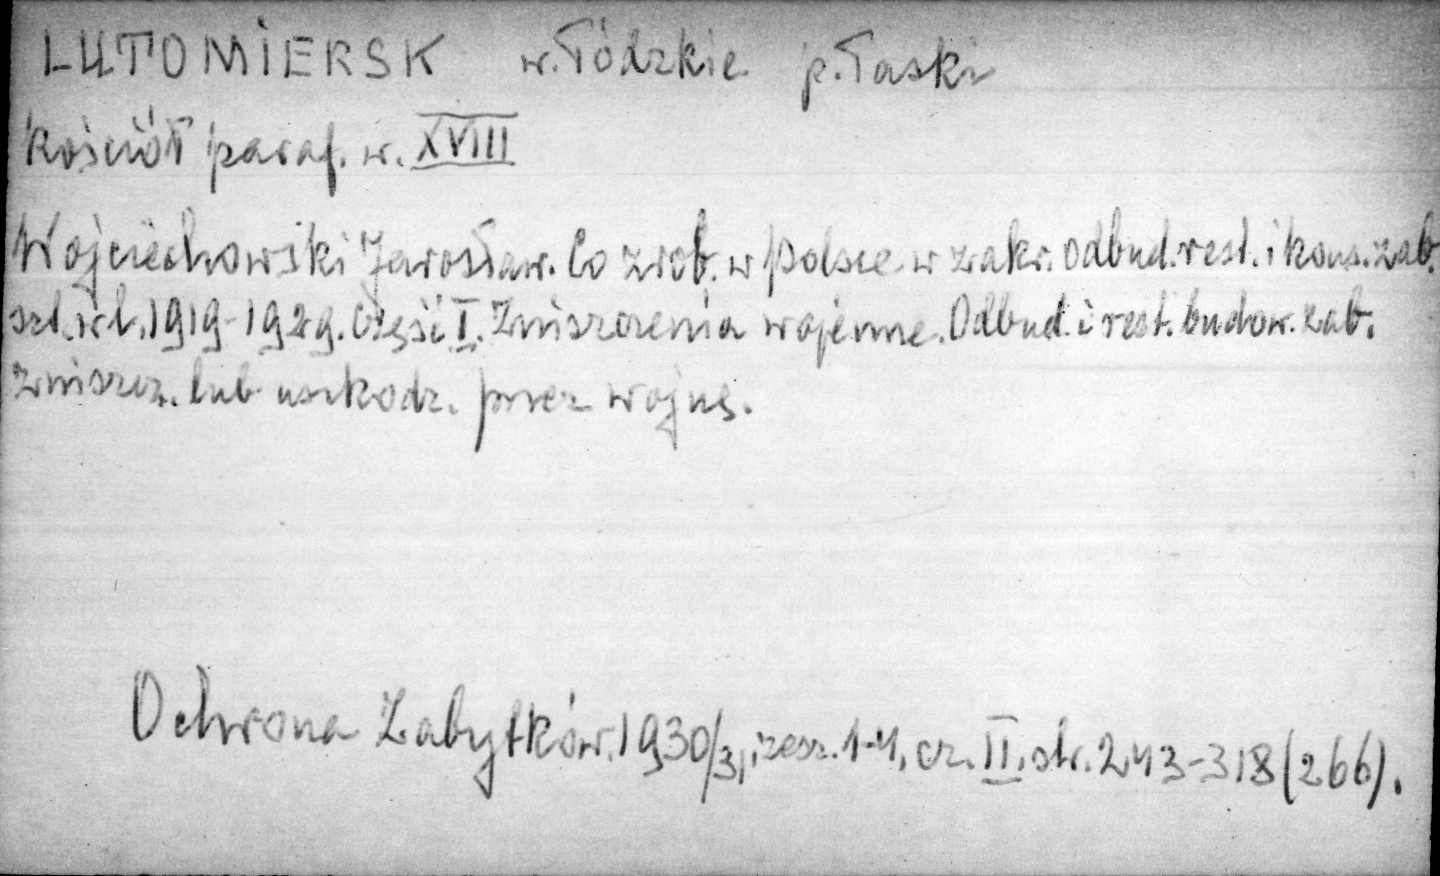 LUTOMIERSK w. Łódzkie p. Łaski
Kościół paraf. w. XVIII
Wojciechowski Jarosław. Co zrob. w Polsce w zakr. odbud. rest. i kons. zab.
szt. w l. 1919-1929. Część I. Zniszczenia wojenne. Odbud. i rest. budow. zab.
zniszcz. lub uszkodz. przez wojnę.
Ochrona Zabytków. 1930/31, zesz. 1-4, cz. II, str. 243-318 (266).